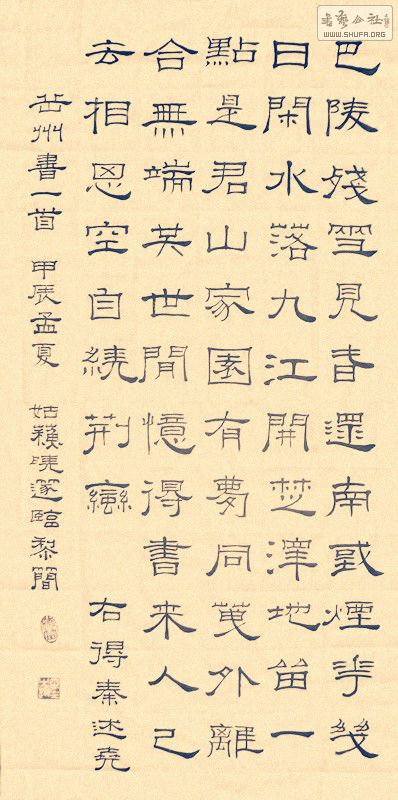 書藝公社
WWW.SHUFA.ORG
巴陵殘雪見春還南或煙華幾
日閑水落九江開楚澤地留一
點是君山家園有夢同外離
合無端世間憶得書来人已
去相恩空自繞荊蠻 右得秦述堯
岳州書一首 甲辰孟夏 姑邃臨黎簡